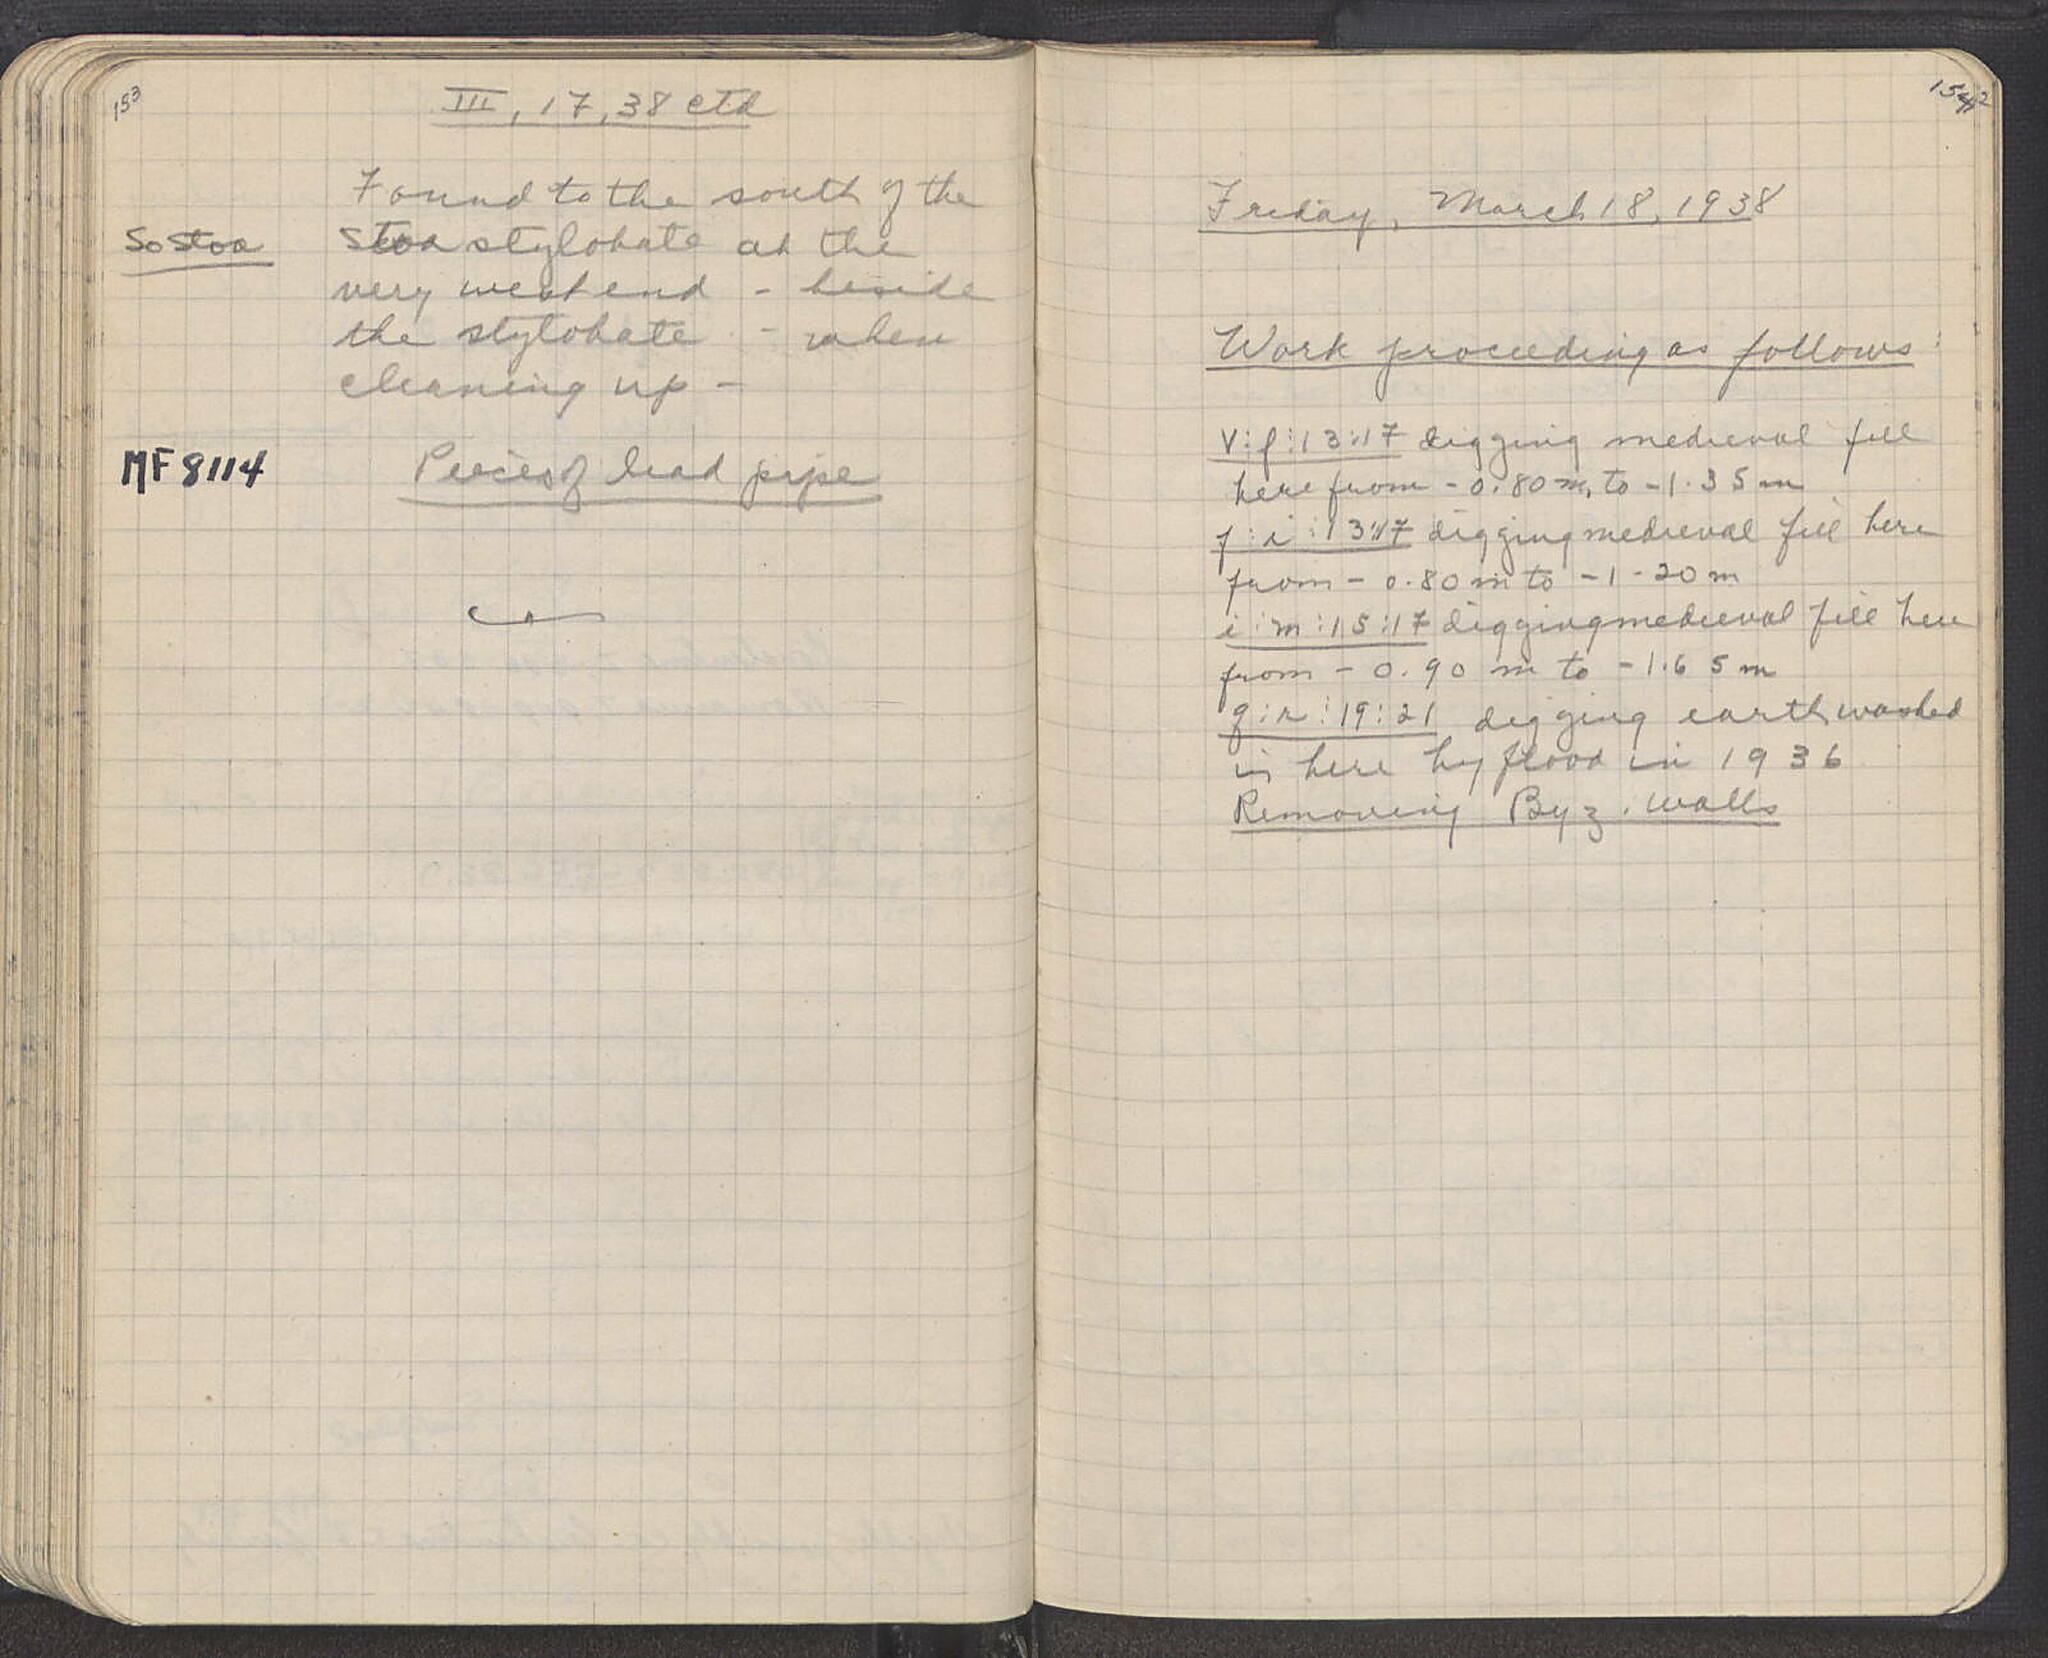 153
III, 17, 38 ctd
Found to the south of the
So Stoa
Stoa stylobate at the
very west end - beside
the stylobate - when
cleaning up -
MF 8114
Pieces of lead pipe
Friday, March 18, 1938
Work proceeding as follows:
V:f:13:17 digging medieval fill
here from - 0.80 m, to - 1.35 m
f:i:13:17 digging medieval fill here
from - 0.80 m to - 1.20 m
i:m:15:17 digging medieval fill here
from - 0.90 m to - 1.65 m
q:r:19:21 digging earth washed
in here by flood in 1936
Removing Byz. walls